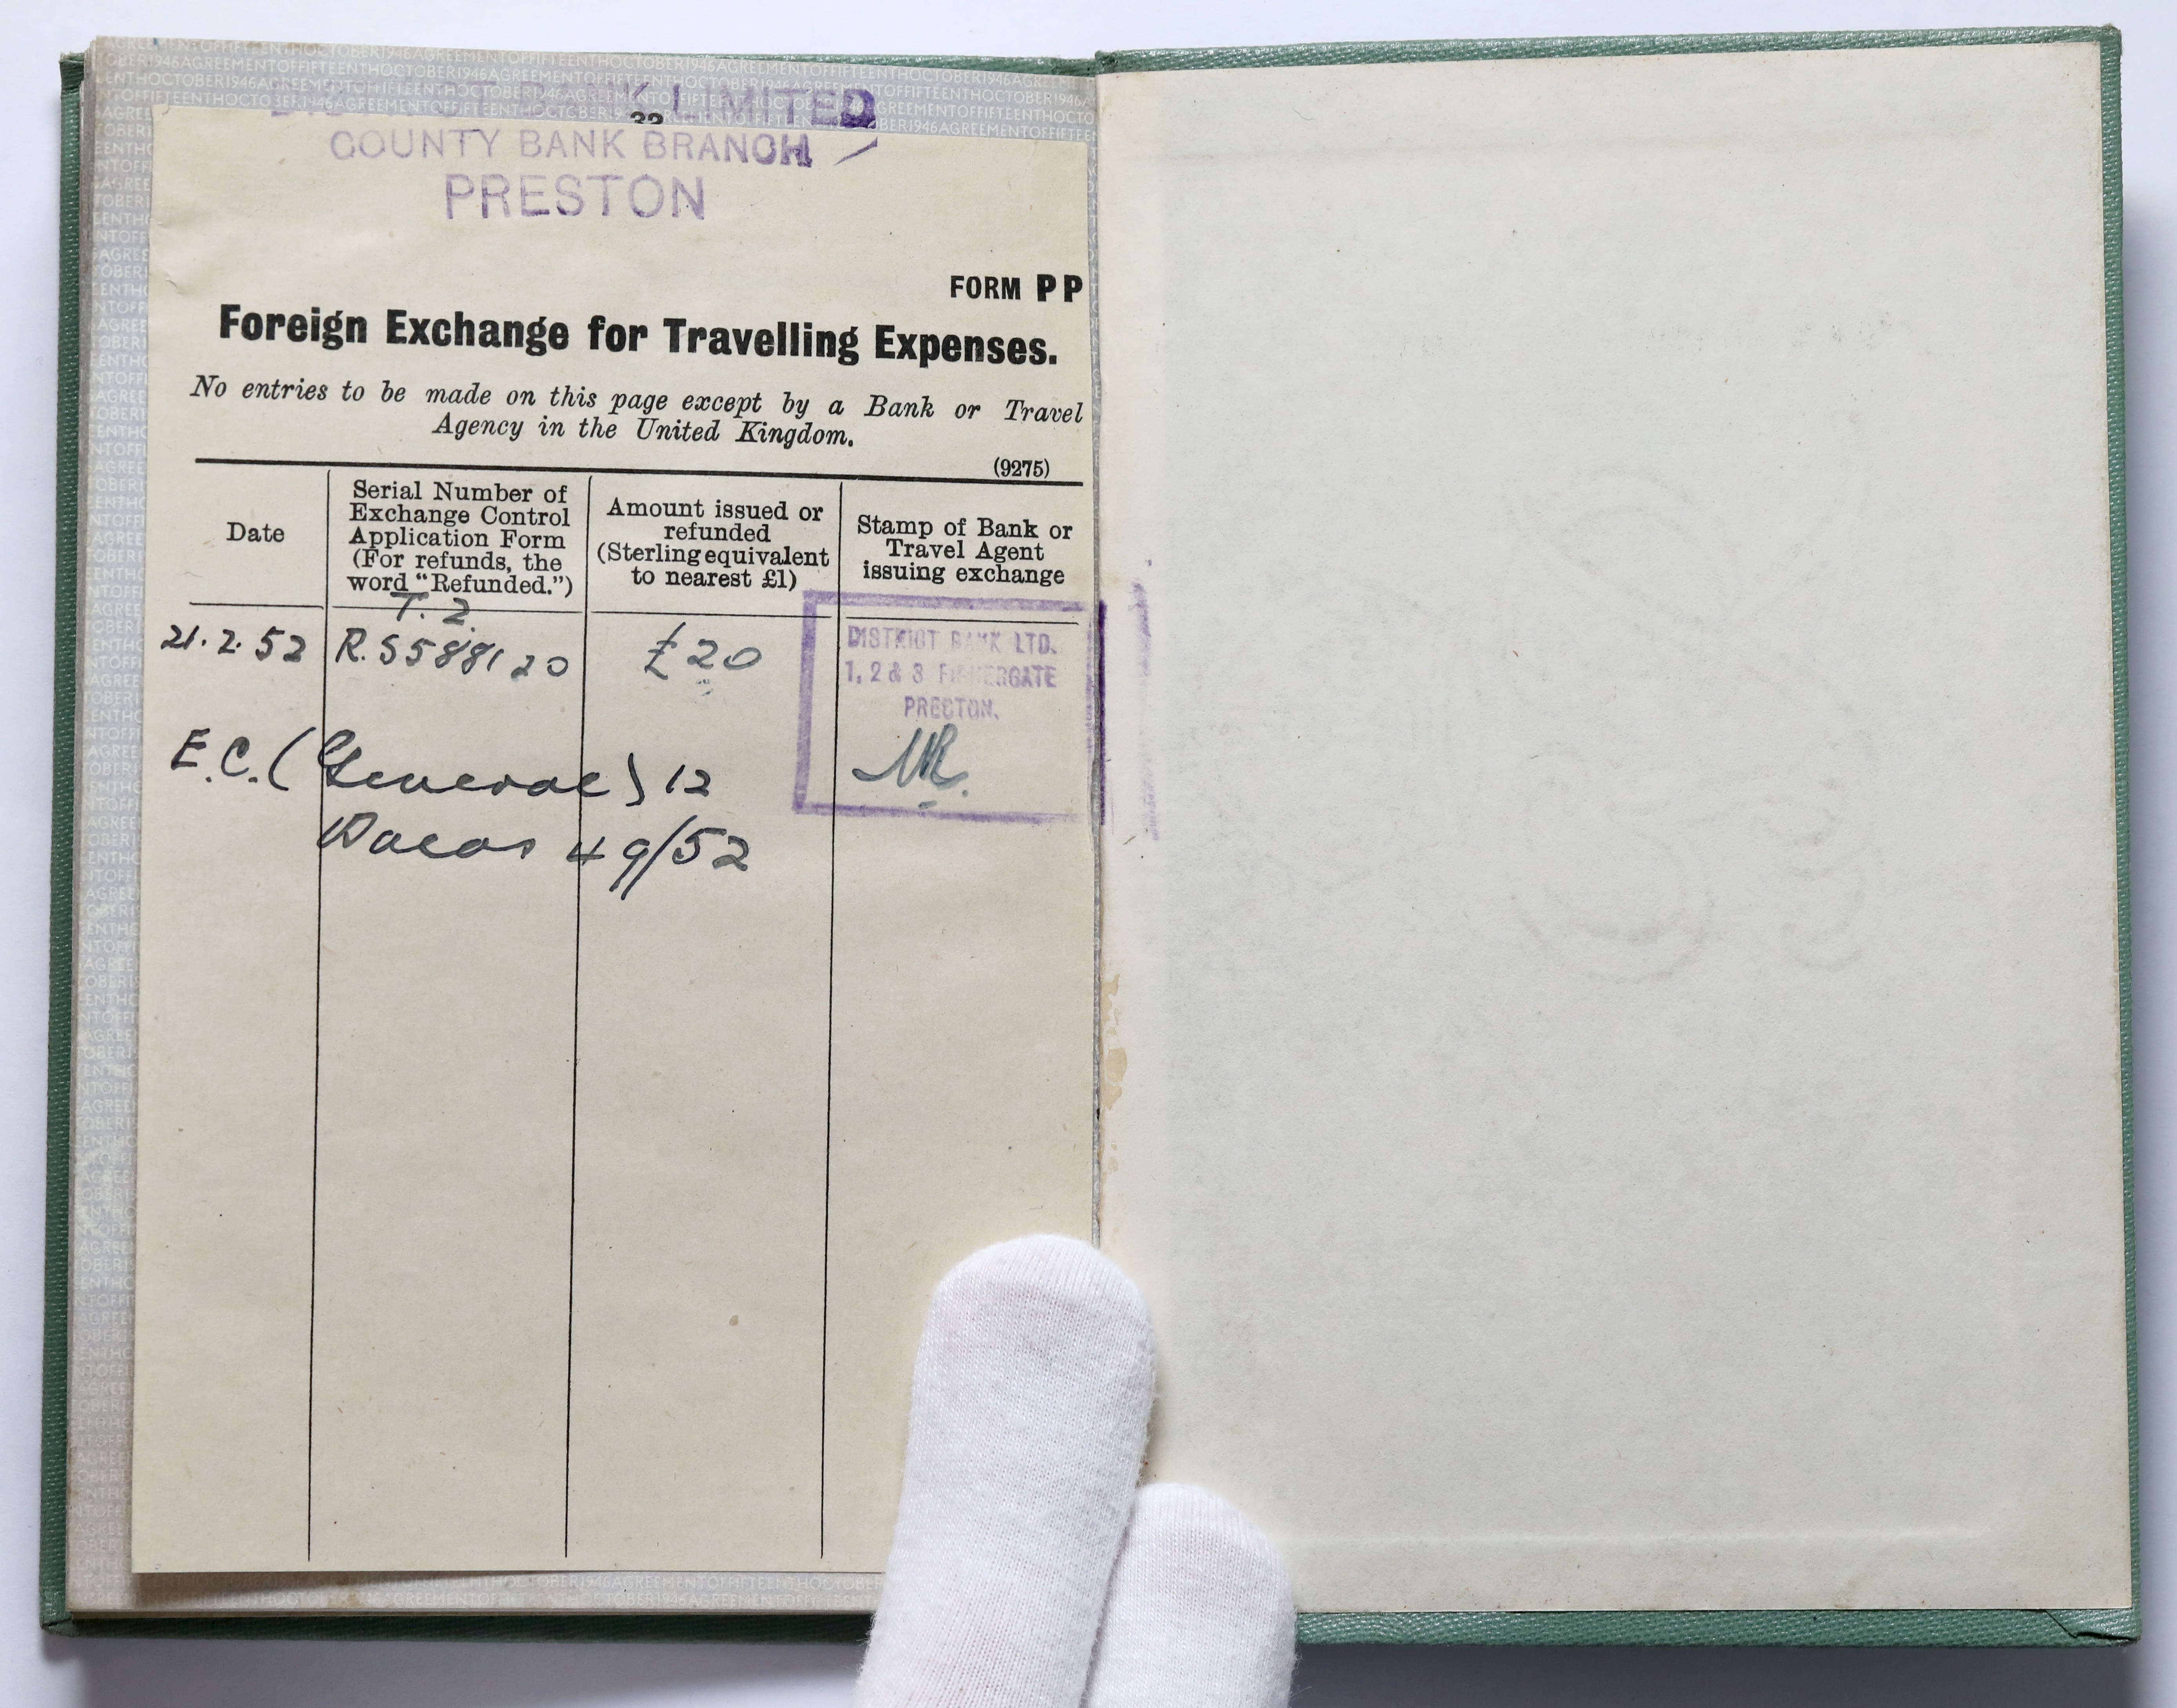 LIMITED
32
COUNTY BANK BRANCH
PRESTON
FORM PP
Foreign Exchange for Travelling Expenses.
No entries to be made on this page except by a Bank or Travel
Agency in the United Kingdom.
(9275)
Date
Serial Number of
Exchange Control
Application Form
(For refunds, the
word "Refunded.")
Amount issued or
refunded
(Sterling equivalent
to nearest £1)
Stamp of Bank or
Travel Agent
issuing exchange
T. 2.
21.2.52 R.S588120 £20
DISTRICT BANK LTD.
1, 2 & 3 FISHERGATE
PRESTON.
E.C. (General) 12
49/52